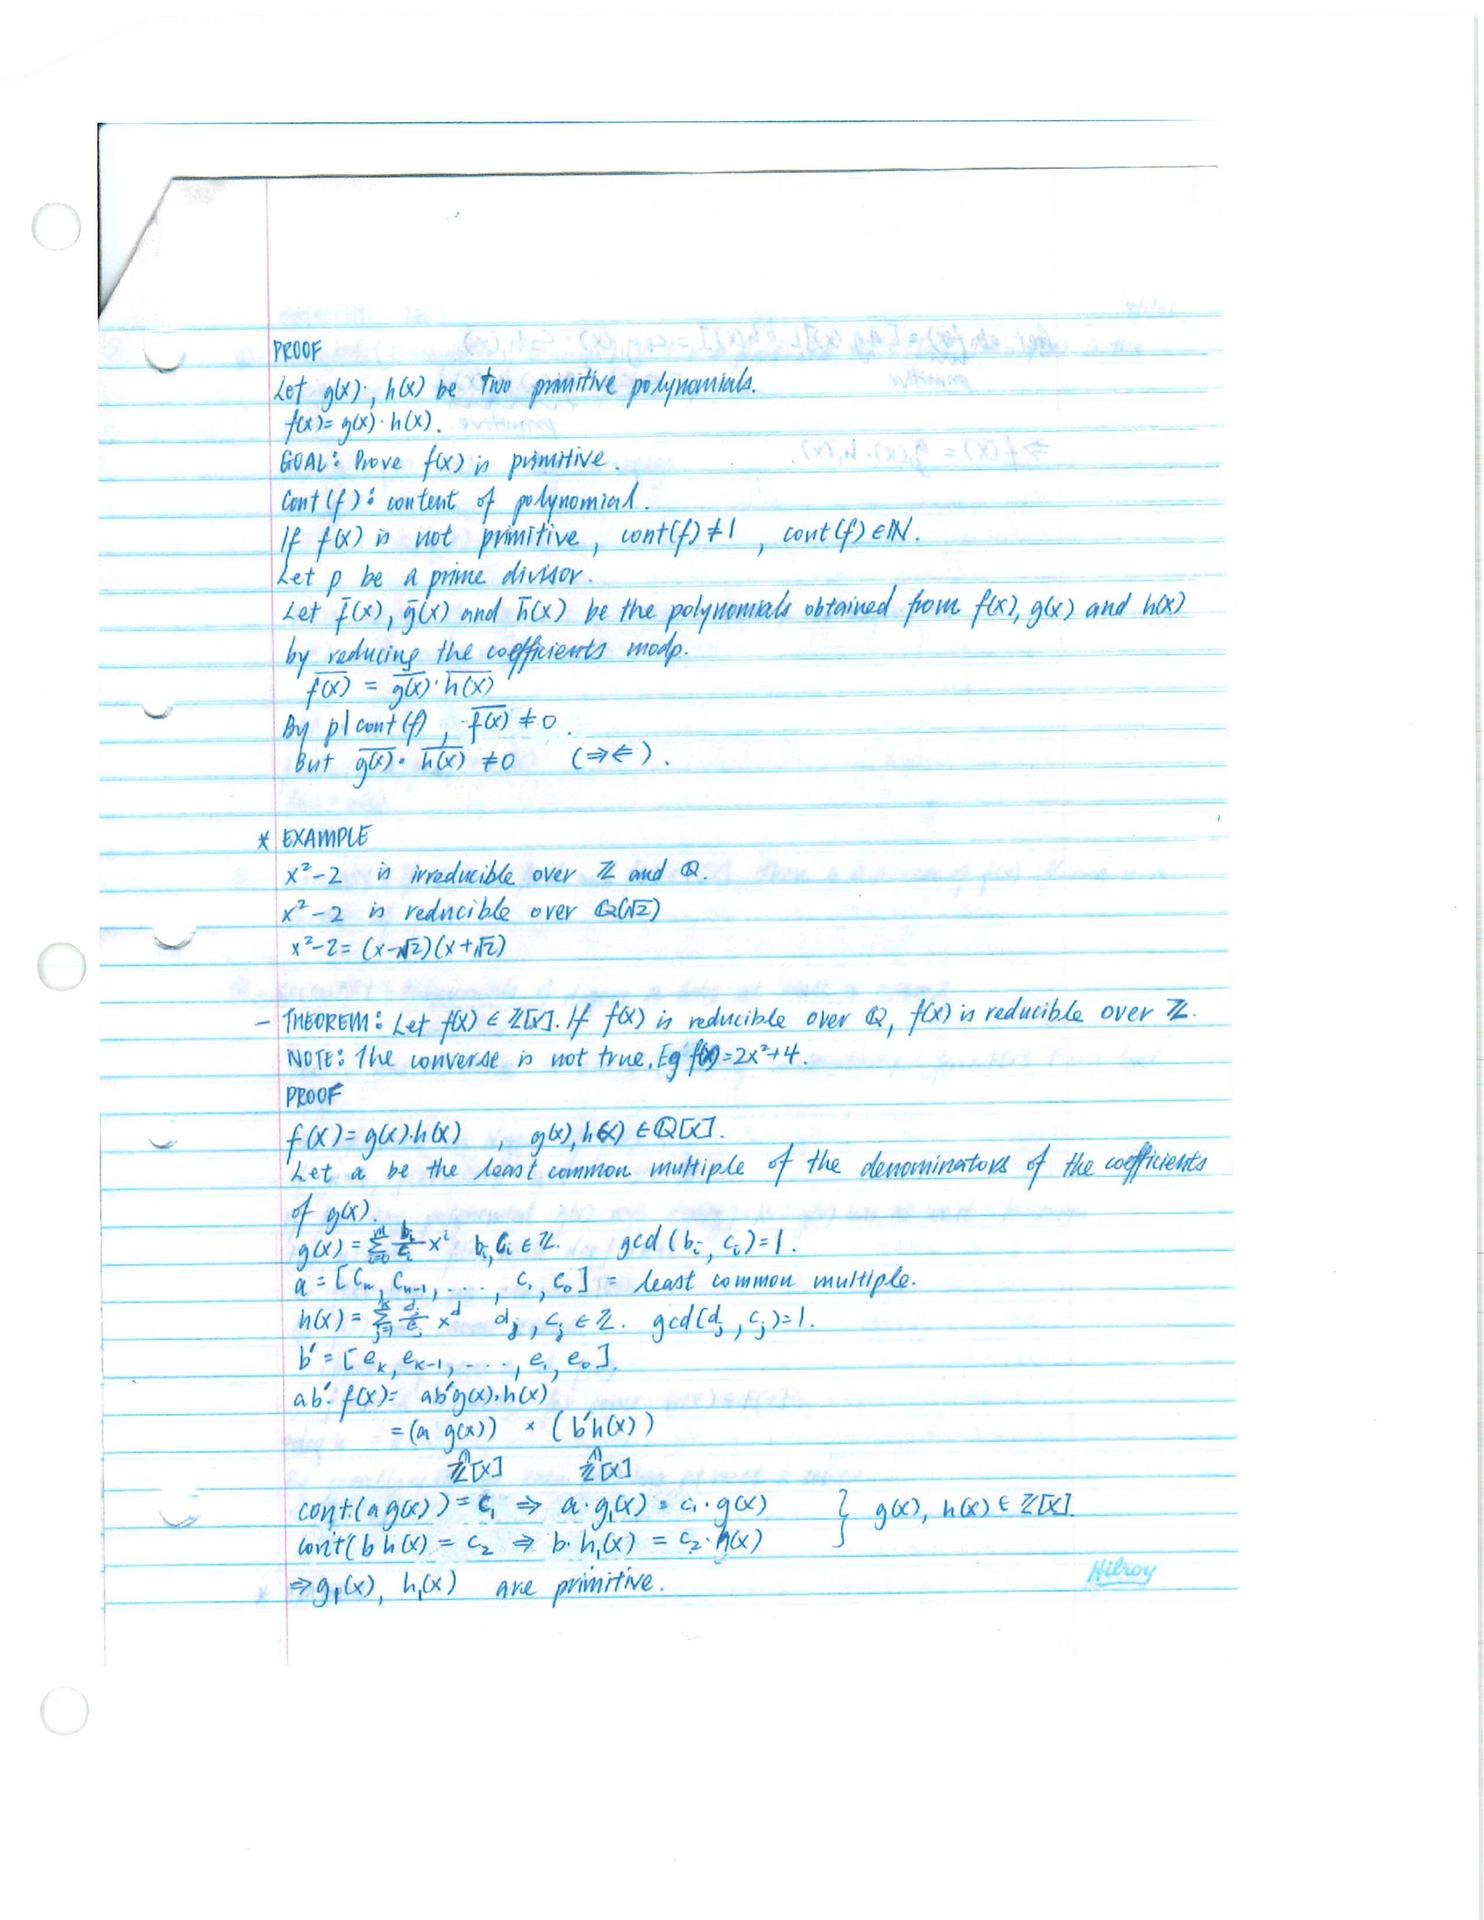 PROOF
Let g(x), h(x) be two primitive polynomials.
f(x)= g(x)·h(x).
GOAL: Prove f(x) is primitive.
Cont(f): content of polynomial.
If f(x) is not primitive, cont(f)≠1, cont(f)∈ℕ.
Let p be a prime divisor.
Let f̄(x), ḡ(x) and h̄(x) be the polynomials obtained from f(x), g(x) and h(x)
by reducing the coefficients modp.
\overline{f(x)} = \overline{g(x)}·\overline{h(x)}
By p|cont(f), \overline{f(x)} ≠0.
But \overline{g(x)}·\overline{h(x)} ≠0 (⇒⇐).
* EXAMPLE
x²-2 is irreducible over ℤ and ℚ.
x²-2 is reducible over ℚ(√2)
x²-2= (x-√2)(x+√2)
- THEOREM: Let f(x) ∈ ℤ[x]. If f(x) is reducible over ℚ, f(x) is reducible over ℤ.
NOTE: The converse is not true. Eg f(x)=2x²+4.
PROOF
f(x)= g(x)·h(x) , g(x), h(x) ∈ℚ[x].
Let a be the least common multiple of the denominators of the coefficients
of g(x).
g(x) = \sum_{i=0}^{m} \frac{b_i}{c_i} x^i b_i, c_i ∈ ℤ. gcd(b_i, c_i)=1.
a = [c_m, c_{m-1}, ..., c_1, c_0] = least common multiple.
h(x) = \sum_{j=1}^{k} \frac{d_j}{e_j} x^j d_j, c_j ∈ ℤ. gcd(d_j, c_j)=1.
b' = [e_k, e_{k-1}, ..., e_1, e_0].
ab'·f(x)= ab'g(x)·h(x)
= (a g(x)) × (b'h(x))
ℤ[x] ℤ[x]
cont(a g(x)) = c₁ ⇒ a·g₁(x) = c₁·g(x) } g(x), h(x) ∈ ℤ[x].
cont(b h(x) = c₂ ⇒ b·h₁(x) = c₂·h(x)
⇒g₁(x), h₁(x) are primitive.
Hilroy